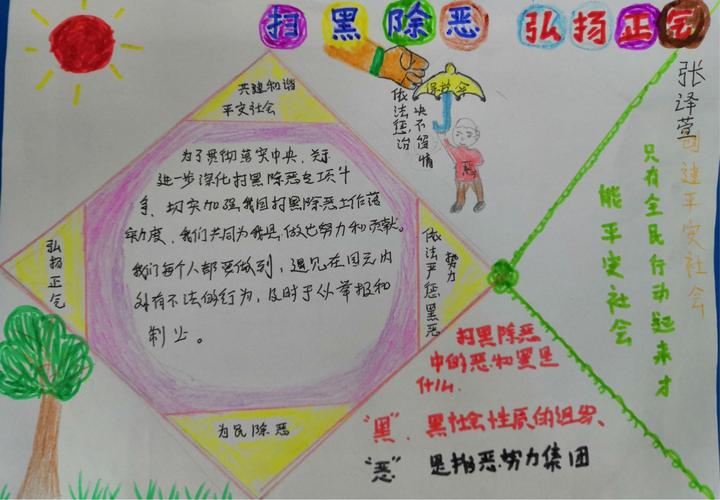 扫黑除恶 弘扬正气
共建和谐
平安社会
保护伞
依法惩治
决不留情
恶
张译萱
为了贯彻落实中央,关于
进一步深化扫黑除恶专项斗
争,切实加强我国扫黑除恶工作落
实力度,我们共同为我县做出努力和贡献。
我们每个人都要做到,遇见在园元内
外有不法的行为,及时予以举报和
制止。
弘扬正气
依法严惩黑恶
势力
为民除恶
创建平安社会
只有全民行动起来才
能平安社会
扫黑除恶
中的恶和黑是
什么
"黑",黑社会性质的组织、
"恶" 是指恶努力集团